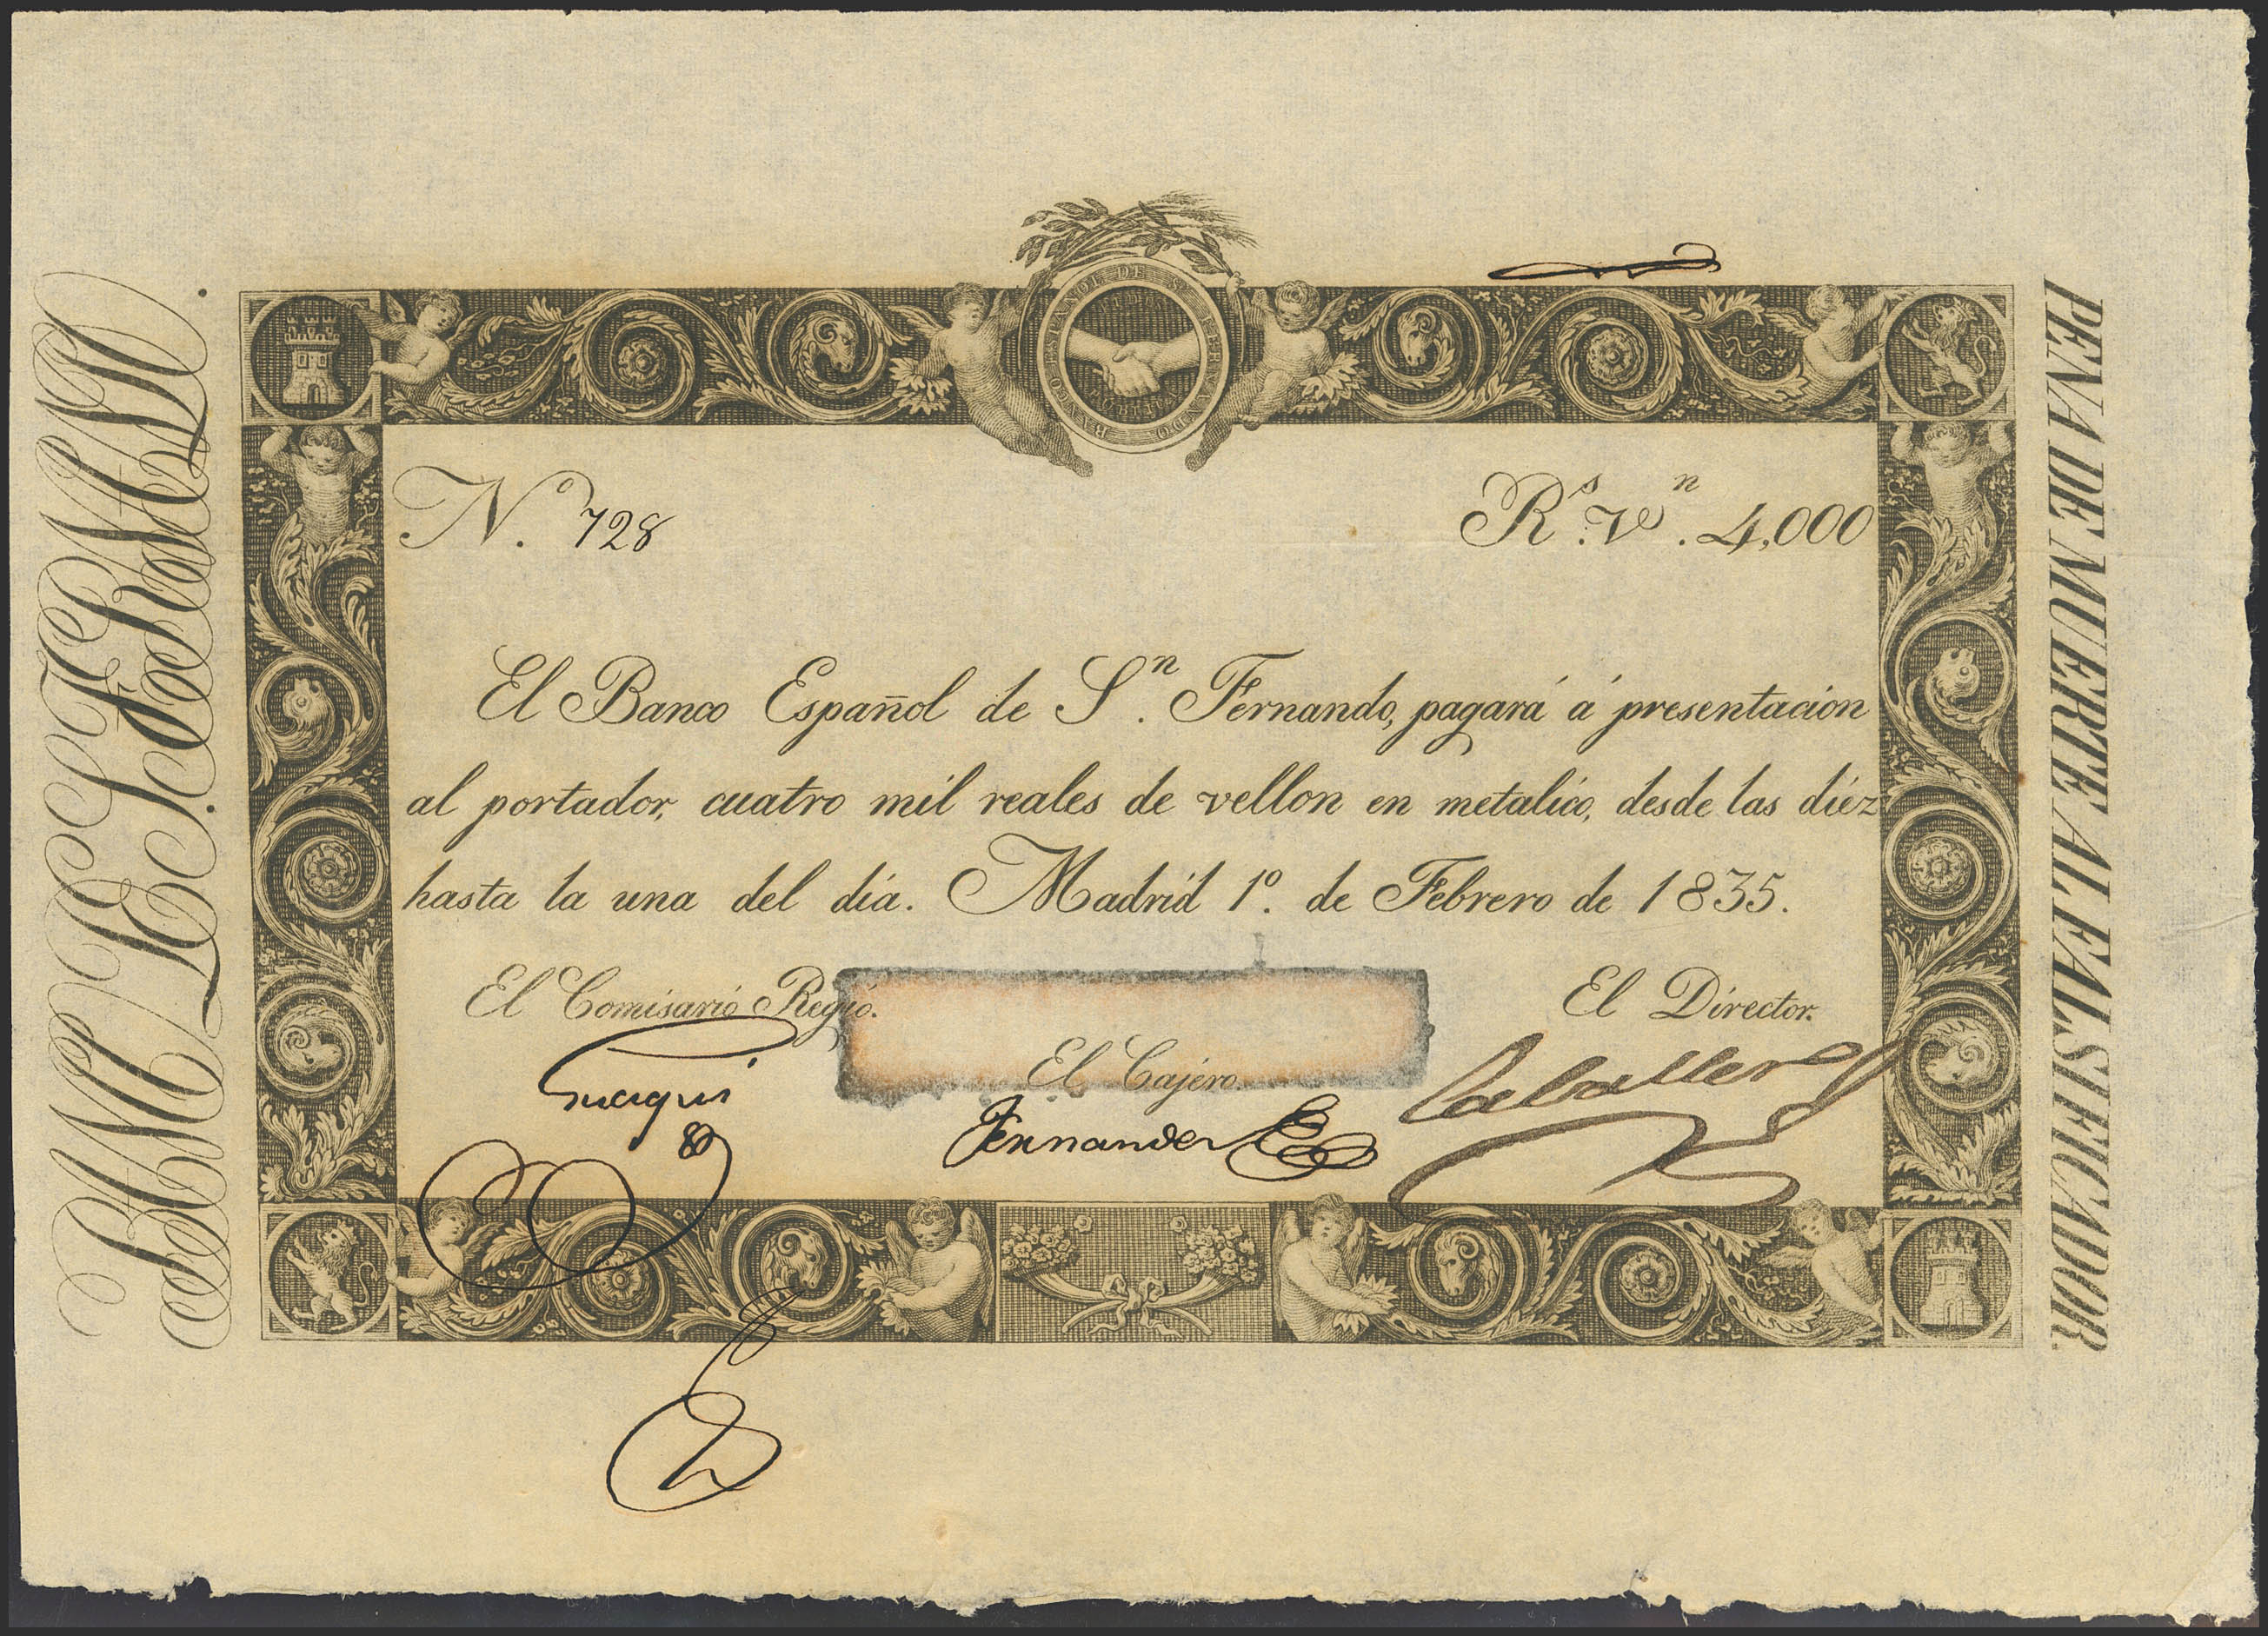 BANCO ESPAÑOL DE Sn. FERNANDO.
N.o 728
Rs. Vn. 4,000
El Banco Español de Sn. Fernando, pagará á presentacion
al portador, cuatro mil reales de vellon en metalico, desde las diez
hasta la una del dia. Madrid 1o. de Febrero de 1835.
El Comisario Regio.
El Director.
El Cajero.
Guaqui
Fernandez
Caballero
PENA DE MUERTE AL FALSIFICADOR.